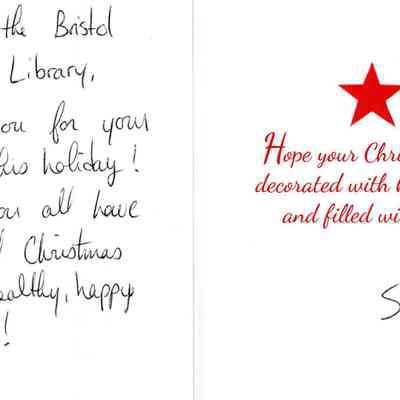 the Bristol
Library,
ou for your
his holiday!
ou all have
Christmas
ealthy, happy
!
Hope your Chri
decorated with
and filled wi
S